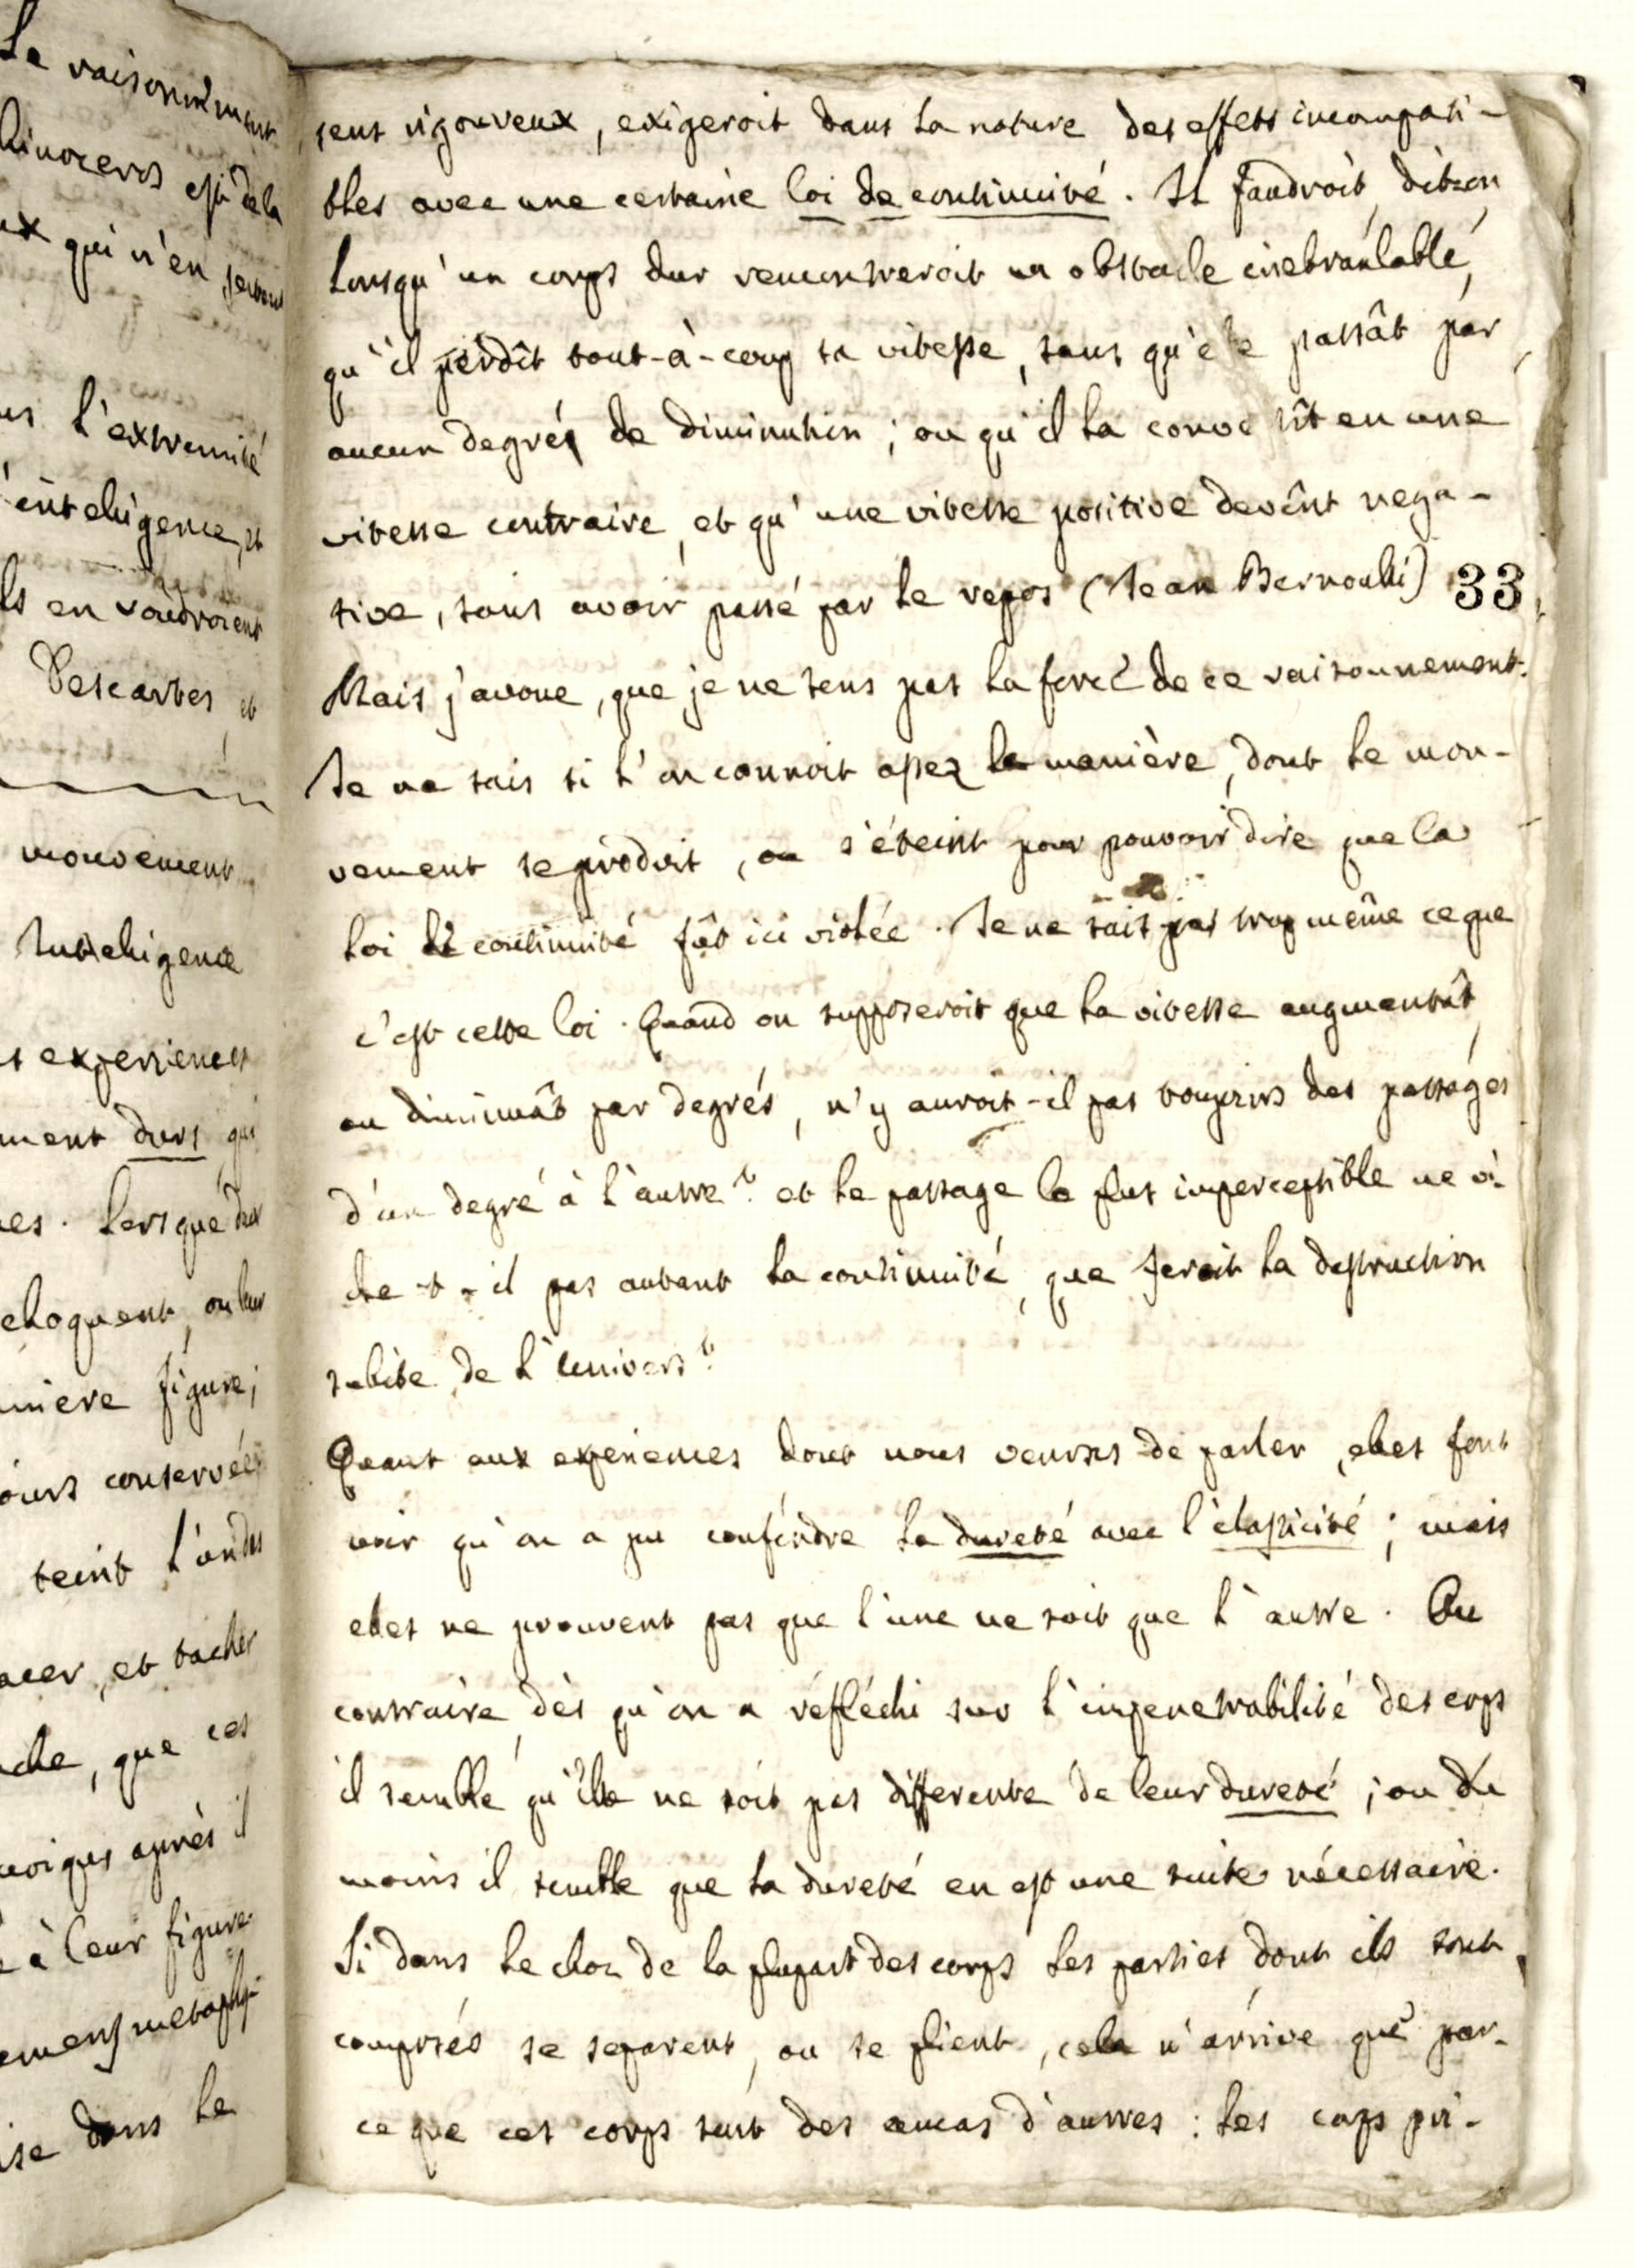 Le raisonnement
Rinoceros est de la
ux qui n'en seroient
us l'extremité
l'intelligence, et
ls en voudroient
Descartes, et
mouvement
Intelligence
s experiences
ment durs qui
es. Lorsque deux
choquent, ou leur
mière figure;
ours conservée
teint l'un des
acer, et tacher
che, que ces
uoique après il
à leur figure
emens metaphy-
ise dans le
sens rigoureux, exigeroit dans la nature des effets incompati-
bles avec une certaine loi de continuité. Il faudroit, dit-on,
lorsqu'un corps dur rencontreroit un obstacle inebranlable,
qu'il perdît tout-à-coup sa vitesse, sans qu'elle passât par
aucun degrés de diminution; ou qu'il la convertît en une
vitesse contraire, et qu'une vitesse positive devînt nega-
tive, sans avoir passé par le repos (Jean Bernoulli) 33
Mais j'avoue, que je ne sens pas la force de ce raisonnement.
Je ne sais si l'on connoit assez la manière, dont le mou-
vement se produit, ou s'éteint pour pouvoir dire que la
loi de continuité fût ici violée. Je ne sait pas trop même ce que
c'est cette loi. Quand on supposeroit que la vitesse augmentât,
ou diminuât par degrés, n'y auroit-il pas toujours des passages
d'un degré à l'autre? et le passage le plus imperceptible ne vi-
ole-t-il pas autant la continuité, que feroit la destruction
subite de l'Univers?
Quant aux experiences dont nous venons de parler, elles font
voir qu'on a pu confondre la dureté avec l'élasticité; mais
elles ne prouvent pas que l'une ne soit que l'autre. Au
contraire, dès qu'on a réfléchi sur l'impenetrabilité des corps
il semble qu'elle ne soit pas differente de leur dureté; ou du
moins il semble que la dureté en est une suite nécessaire.
Si dans le choc de la plupart des corps les parties dont ils sont
composés se separent, ou se plient, cela n'arrive que par-
ce que ces corps sont des amas d'autres: les corps pri-